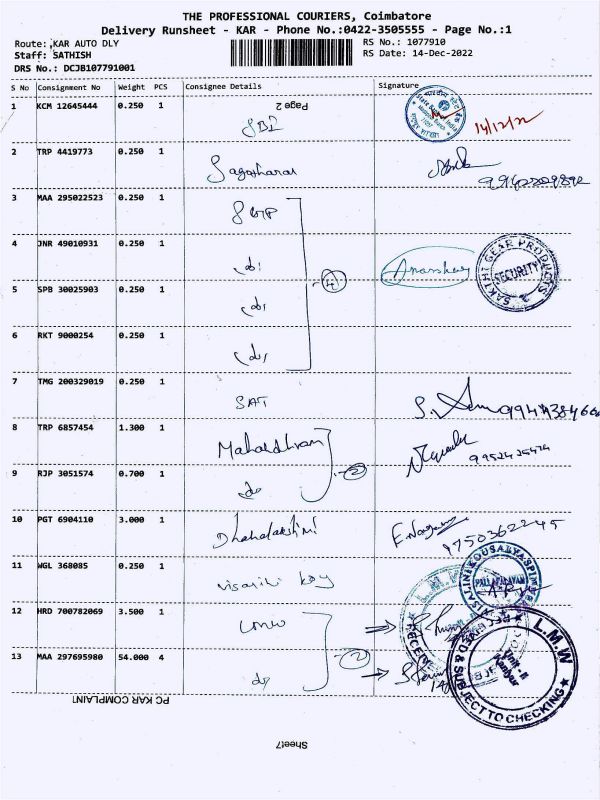 THE PROFESSIONAL COURIERS, Coimbatore
Delivery Runsheet - KAR - Phone No.:0422-3505555 - Page No.:1
Route: KAR AUTO DLY RS No.: 1077910
Staff: SATHISH RS Date: 14-Dec-2022
DRS No.: DCJB107791001
S No Consignment No Weight PCS Consignee Details Signature
Page 2
1 KCM 12645444 0.250 1 SBI 14/12/22
2 TRP 4419773 0.250 1
3 MAA 295022523 0.250 1 SGP
4 JNR 49010931 0.250 1 do
SAKTHI GEAR PRODUCTS SECURITY
5 SPB 30025903 0.250 1 do
4
6 RKT 9000254 0.250 1 do
7 TMG 200329019 0.250 1 SAT
8 TRP 6857454 1.300 1
9 RJP 3051574 0.700 1 do 2
10 PGT 6904110 3.000 1 Dhanalakshmi 9750362245
11 WGL 368085 0.250 1
12 HRD 700782069 3.500 1 LMW
L.M.W
Unit-II
& SUBJECT TO CHECKING
13 MAA 297695980 54.000 4 do 2
PC KAR COMPLAINT
Sheet7